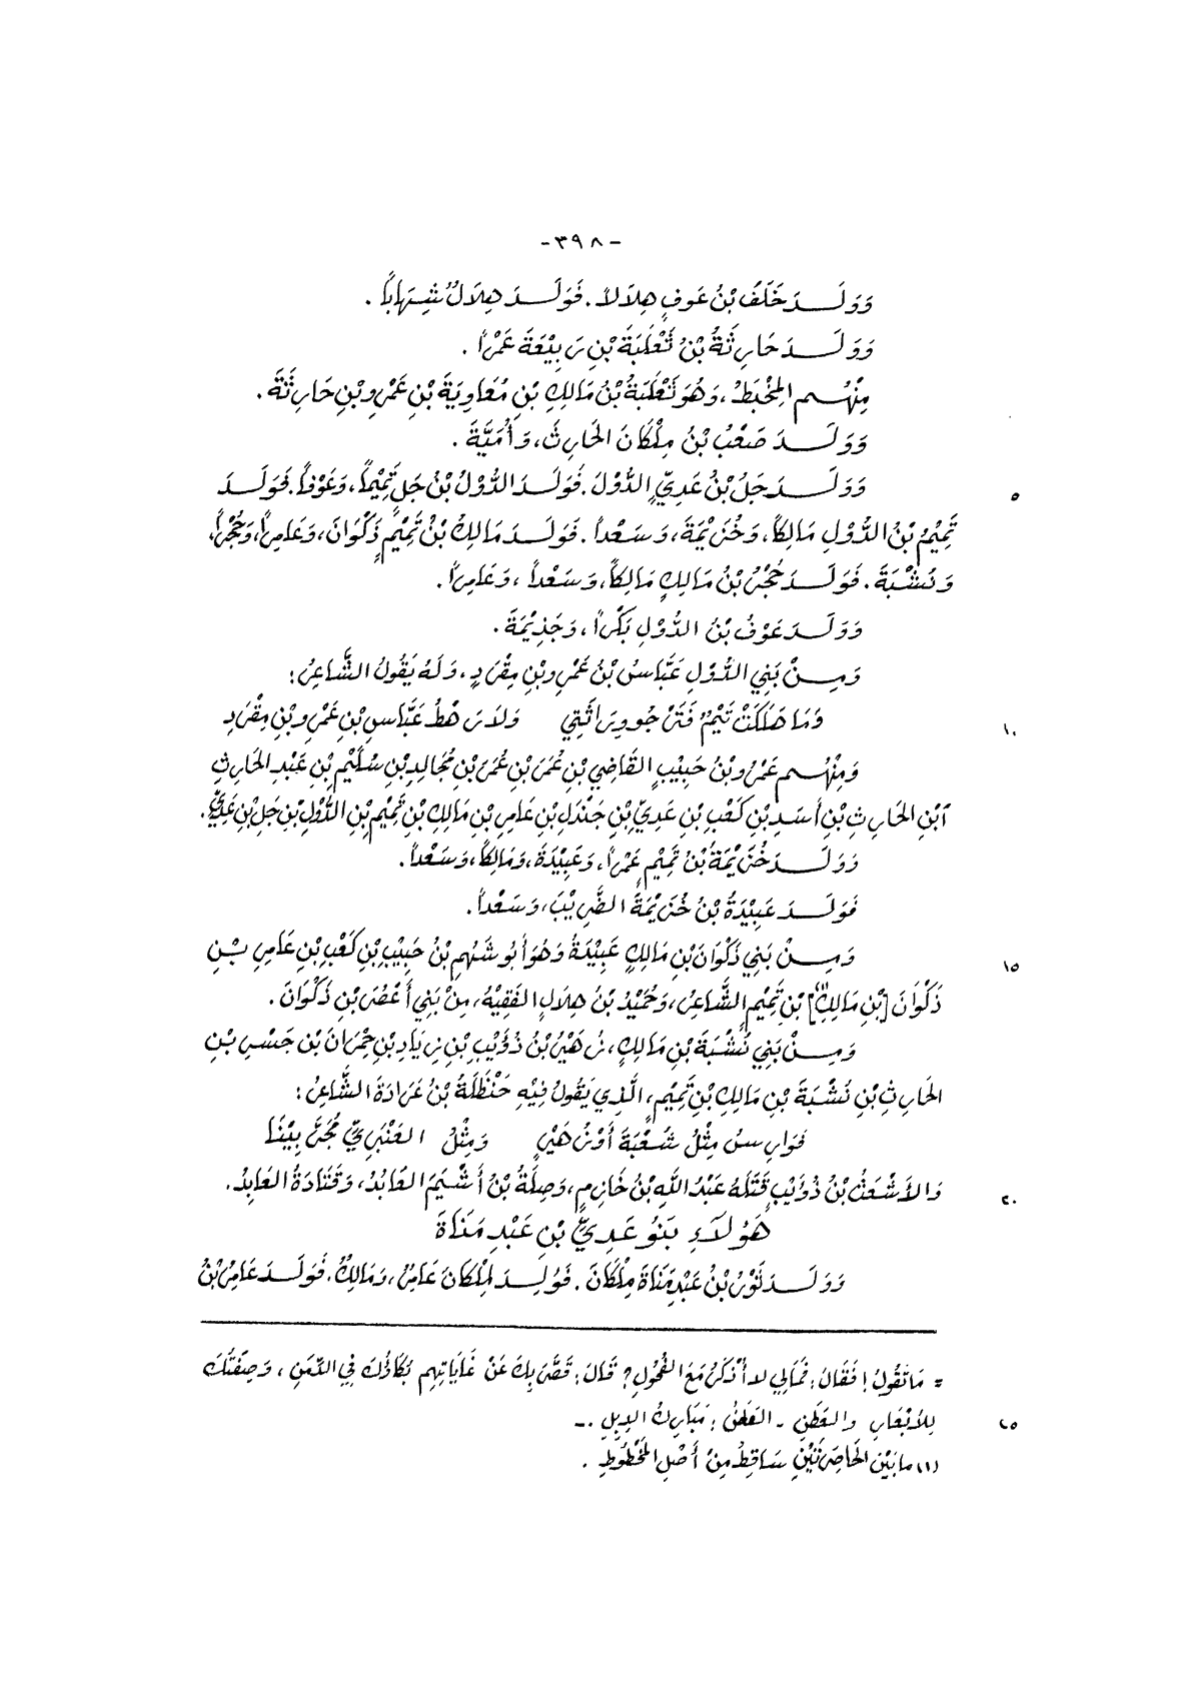 -٣٩٨-
وَوَلَــدَ خَلَفُ بْنُ عَوفٍ هِلاَلاً. فَوَلَــدَ هِلاَلٌ شِهَاباً.
وَوَلَــدَ حَارِثَةُ بْنُ ثَعْلَبَةَ بْنِ رَبِيْعَةَ عَمْراً.
مِنْهُــم المِخْبَطُ، وَهُوَ ثَعْلَبَةُ بْنُ مَالِكِ بْنِ مُعَاوِيَةَ بْنِ عَمْرِو بْنِ حَارِثَةَ.
وَوَلَــدَ صَعْبُ بْنُ مِلْكَانَ الحَارِثَ، وَأُمَيَّةَ.
وَوَلَــدَ جَلُّ بْنُ عَدِيٍّ الدُّوْلَ. فَوَلَــدَ الدُّوْلُ بْنُ جَلٍّ تَمِيْماً، وَعَوْفاً. فَوَلَــدَ ٥
تَمِيْمُ بْنُ الدُّوْلِ مَالِكاً، وَخُزَيْمَةَ، وَسَعْداً. فَوَلَــدَ مَالِكُ بْنُ تَمِيْمٍ ذَكْوَانَ، وَعَامِراً، وَحُجْراً،
وَنُشْبَةَ. فَوَلَــدَ حُجْرُ بْنُ مَالِكٍ مَالِكاً، وَسَعْداً، وَعَامِراً.
وَوَلَــدَ عَوْفُ بْنُ الدُّوْلِ بَكْراً، وَجَذِيْمَةَ.
وَمِــنْ بَنِي الدُّوْلِ عَبَّاسُ بْنُ عَمْرِو بْنِ مِقْرَدٍ، وَلَهُ يَقُولُ الشَّاعِرُ:
وَمَا هَلَكَتْ تَيْمٌ فَتَرْجُو وِرَاثَتِي وَلاَ رَهْطُ عَبَّاسِ بْنِ عَمْرِو بْنِ مِقْرَدِ ١٠
وَمِنْهُــم عَمْرُو بْنُ حَبِيْبٍ القَاضِي بْنِ عُمَرَ بْنِ عُمَرَ بْنِ مُجَالِدِ بْنِ سُلَيْمِ بْنِ عَبْدِ الحَارِثِ
آبْنِ الحَارِثِ بْنِ أَسَدِ بْنِ كَعْبِ بْنِ عَدِيِّ بْنِ جَنْدَلِ بْنِ عَامِرِ بْنِ مَالِكِ بْنِ تَمِيْمِ بْنِ الدُّوْلِ بْنِ جَلِّ بْنِ عَدِيٍّ.
وَوَلَــدَ خُزَيْمَةُ بْنُ تَمِيْمٍ عَمْراً، وَعَبِيْدَةَ، وَمَالِكاً، وَسَعْداً.
فَوَلَــدَ عَبِيْدَةُ بْنُ خُزَيْمَةَ الضَّرِيْبَ، وَسَعْداً.
وَمِــنْ بَنِي ذَكْوَانَ بْنِ مَالِكٍ عَبِيْدَةُ وَهُوَ أَبُو شَهْمِ بْنُ حَبِيْبِ بْنِ كَعْبِ بْنِ عَامِرِ بْـنِ ١٥
ذَكْوَانَ [بْنِ مَالِكِ](١) بْنِ تَمِيْمٍ الشَّاعِرُ، وَحُمَيْدُ بْنُ هِلاَلٍ الفَقِيْهُ، مِنْ بَنِي أَعْصَرَ بْنِ ذَكْوَانَ.
وَمِــنْ بَنِي نُشْبَةَ بْنِ مَالِكٍ، زُهَيْرُ بْنُ ذُؤَيْبِ بْنِ زِيَادِ بْنِ حِمْرَانَ بْنِ جَسْرِ بْنِ
الحَارِثِ بْنِ نُشْبَةَ بْنِ مَالِكِ بْنِ تَمِيْمٍ، الَّذِي يَقُولُ فِيْهِ حَنْظَلَةُ بْنُ عَرَادَةَ الشَّاعِرُ:
فَوَارِسُ مِثْلُ شُعْبَةَ أَوْ زُهَيْرٍ وَمِثْلُ العَنْبَرِيِّ مُجَرَّبِيْنَا
وَالأَشْعَثُ بْنُ ذُؤَيْبٍ قَتَلَهُ عَبْدُ اللَّهِ بْنُ خَازِمٍ، وَصِلَةُ بْنُ أَشْيَمَ العَابِدُ، وَقَتَادَةُ العَابِدُ. ٢٠
هَؤُلاَءِ بَنُو عَدِيِّ بْنِ عَبْدِ مَنَاةَ
وَوَلَــدَ ثَوْرُ بْنُ عَبْدِ مَنَاةَ مِلْكَانَ. فَوُلِــدَ لِمِلْكَانَ عَامِرٌ، وَمَالِكٌ. فَوَلَــدَ عَامِرُ بْنُ
= مَا تَقُولُ! فَقَالَ: فَمَالِي لاَ أُذْكَرُ مَعَ الفُحُولِ؟ قَالَ: قَصَّرَ بِكَ عَنْ غَايَاتِهِم بُكَاؤُكَ فِي الدِّمَنِ، وَصِفَتُكَ
لِلأَبْعَارِ وَالعَطَنِ - العَطَنُ: مَبَارِكُ الإِبِلِ.- ٢٥
(١) مابَيْنَ الحَاصِرَتَيْنِ سَاقِطٌ مِنْ أَصْلِ المَخْطُوطِ.